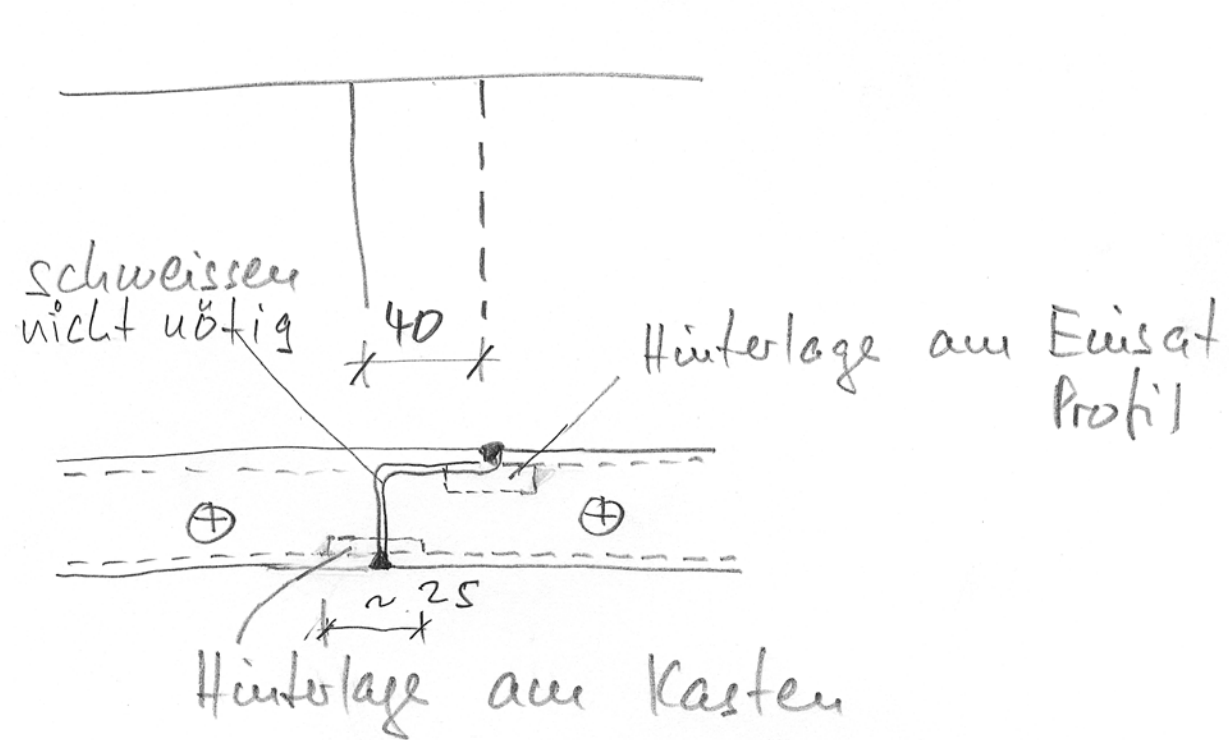 schweissen
nicht nötig
40
Hinterlage am Einsat
Profil
~ 25
Hinterlage am Kasten